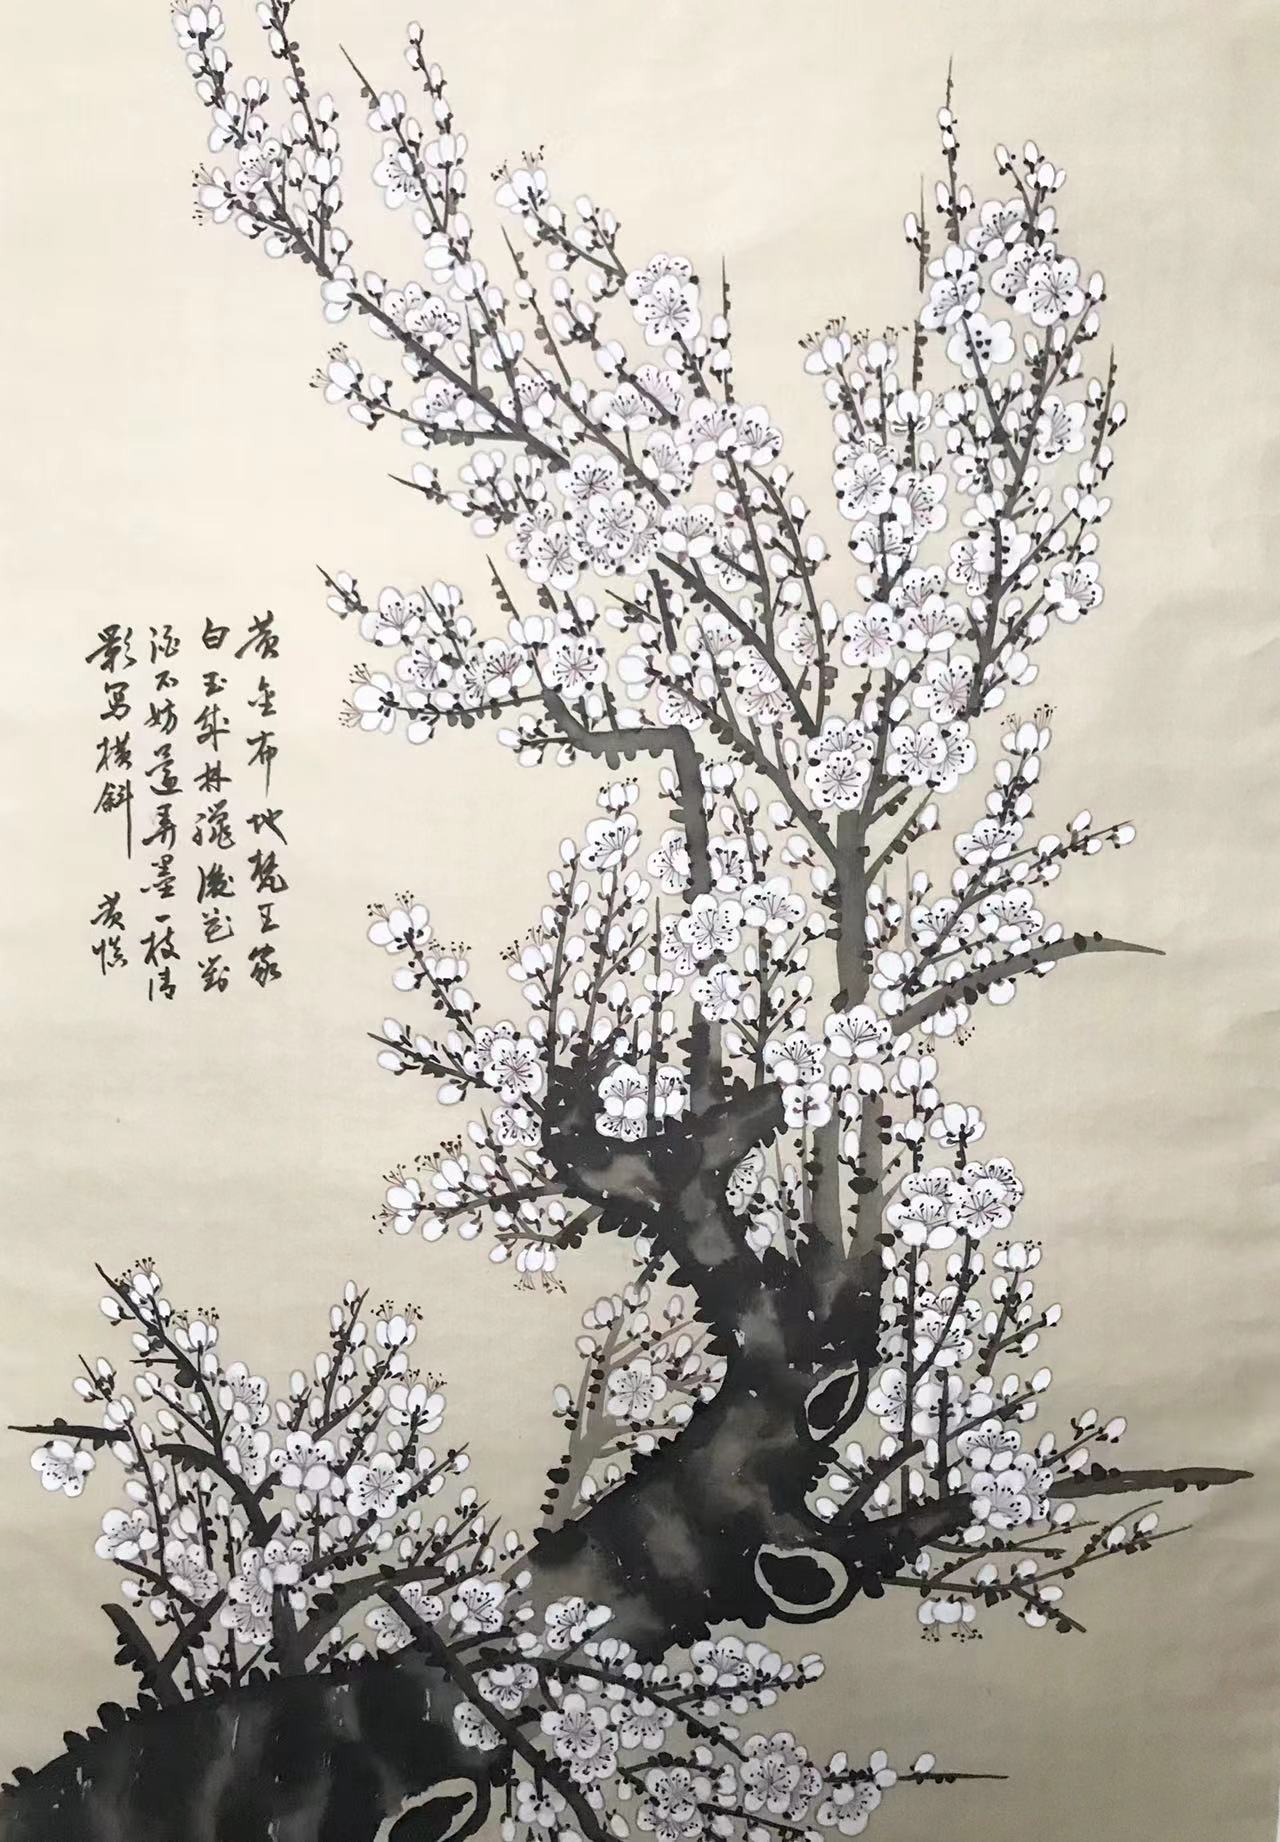 黄金布地梵王家
白玉成林臘後花對
酒不妨還弄墨一枝清
影写横斜 黄慎